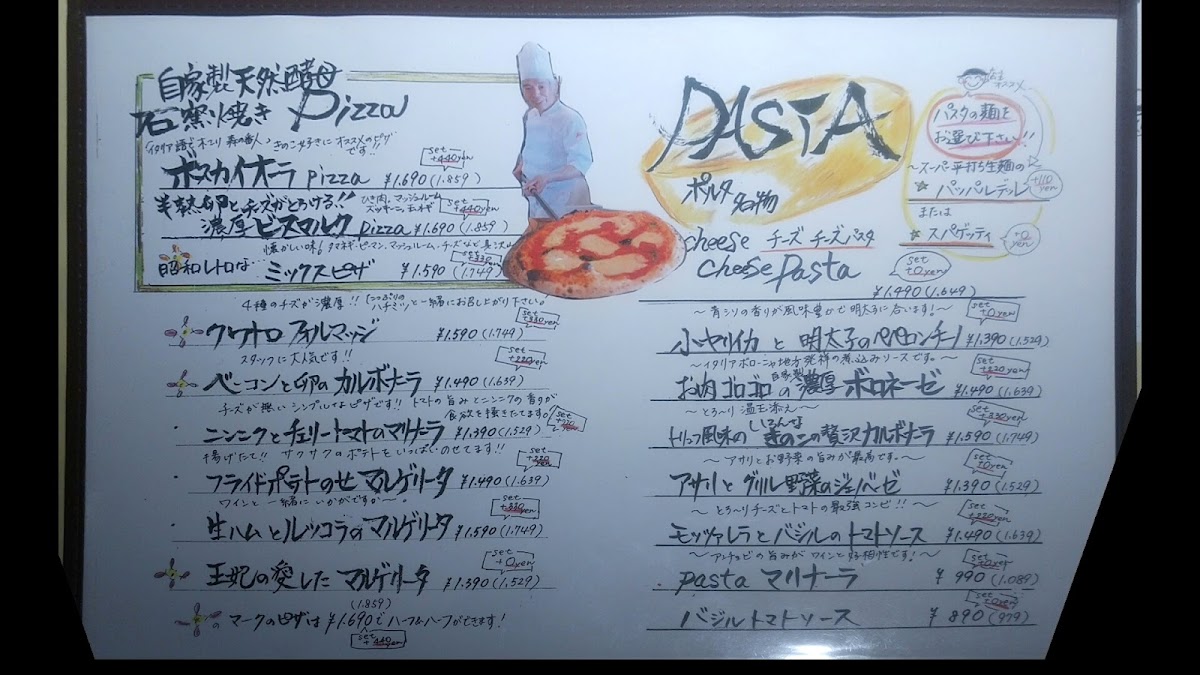 自家製天然酵母
石窯焼き Pizza
イタリア語で木こり 森の番人♪ きのこ好きに オススメのピザです!!
set +440yen
ボスカイオーラ pizza ¥1.690(1.859)
半熟卵とチーズがとろける!! ひき肉、マッシュルーム、ズッキーニ、玉ネギ
set +440yen
濃厚 ビスマルク pizza ¥1.690(1.859)
懐かしい味! タマネギ・ピーマン、マッシュルーム・チーズなど
set +330yen
昭和レトロな ミックスピザ ¥1.590(1.749)
4種のチーズが濃厚!! ハチミツと一緒にお召し上がり下さい。
set +330yen
クワトロ フォルマッジ ¥1.590(1.749)
スタッフに大人気です!!
set +220yen
ベーコンと卵の カルボナーラ ¥1.490(1.639)
チーズが無い シンプルなピザです!! トマトの旨みとニンニクの香りが
食欲を掻きたてます。
set
ニンニクとチェリートマトのマリナーラ ¥1.390(1.529)
揚げたて!! サクサクのポテトをいっぱいのせてます!!
set +220yen
フライドポテトのせ マルゲリータ ¥1.490(1.639)
ワインと一緒にいかがですか〜。
set +330yen
生ハムとルッコラのマルゲリータ ¥1.590(1.749)
set +0yen
王妃の愛した マルゲリータ ¥1.390(1.529)
(1.859)
の マークのピザは ¥1.690でハーフ&ハーフができます!
set +440yen
PASTA
ポルタ名物
店主オススメ
パスタの麺を
お選び下さい!!
〜スーパー平打ち生麺の
パッパルデッレ +110yen
または
スパゲッティ +0yen
cheese チーズ チーズパスタ
cheese pasta
set +0yen
¥1.490(1.649)
〜青シソの香りが風味豊かで明太子に合います!〜
set +0yen
小ヤリイカ と 明太子のペペロンチーノ ¥1.390(1.529)
〜イタリアボローニャ地方発祥の煮込みソースです。〜
set +220yen
お肉ゴロゴロ の 自家製 濃厚 ボロネーゼ ¥1.490(1.639)
〜とろ〜り 温玉添え〜
set +330yen
トリュフ風味の いろんな きのこの贅沢カルボナーラ ¥1.590(1.749)
〜アサリとお野菜の旨みが最高です。〜
set +0yen
アサリと グリル野菜のジェノベーゼ ¥1.390(1.529)
〜とろ〜りチーズとトマトの最強コンビ!!〜
set +220yen
モッツァレラとバジルの トマトソース ¥1.490(1.639)
〜アンチョビの旨みが ワインと好相性です!〜
set +0yen
pasta マリナーラ ¥ 990(1.089)
set +0yen
バジルトマトソース ¥ 890(979)